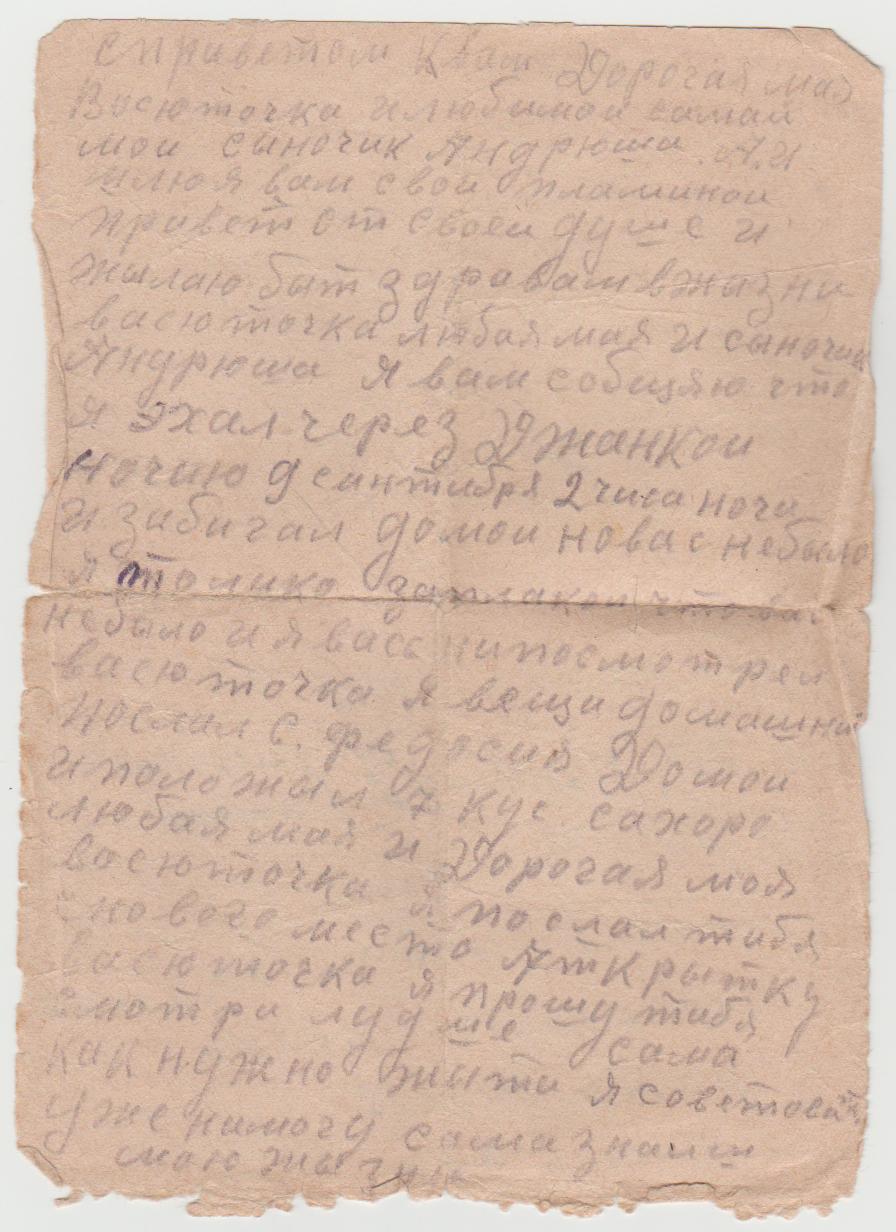 с приветом к вам Дорогая мая
Васюточка и любимои самаи
мои сыночик Андрюша. А. И
шлю я вам свои пламинои
привет от своеи душе и
жылаю быт здравам в жизни
васюточка любая мая и сыночик
Андрюша я вам собщяю что
я эхал через Джанкои
ночию 9 синтибря 2 чиса ночи
и забигал домои но вас небыло
я толико заплакал что вас
небыло и я вась нипосмотрел
васюточка я вещи домашнии
послал с. федосия Домои
и положыл 7 кус. сахоро
любая мая и Дорогая моя
васюточка я послал тибя
с нового место Аткрытку
васюточка я прошу тибя
смотри лудше сама
как нужно жыти я советоват
уже нимогу сама знаиш
мою жызни